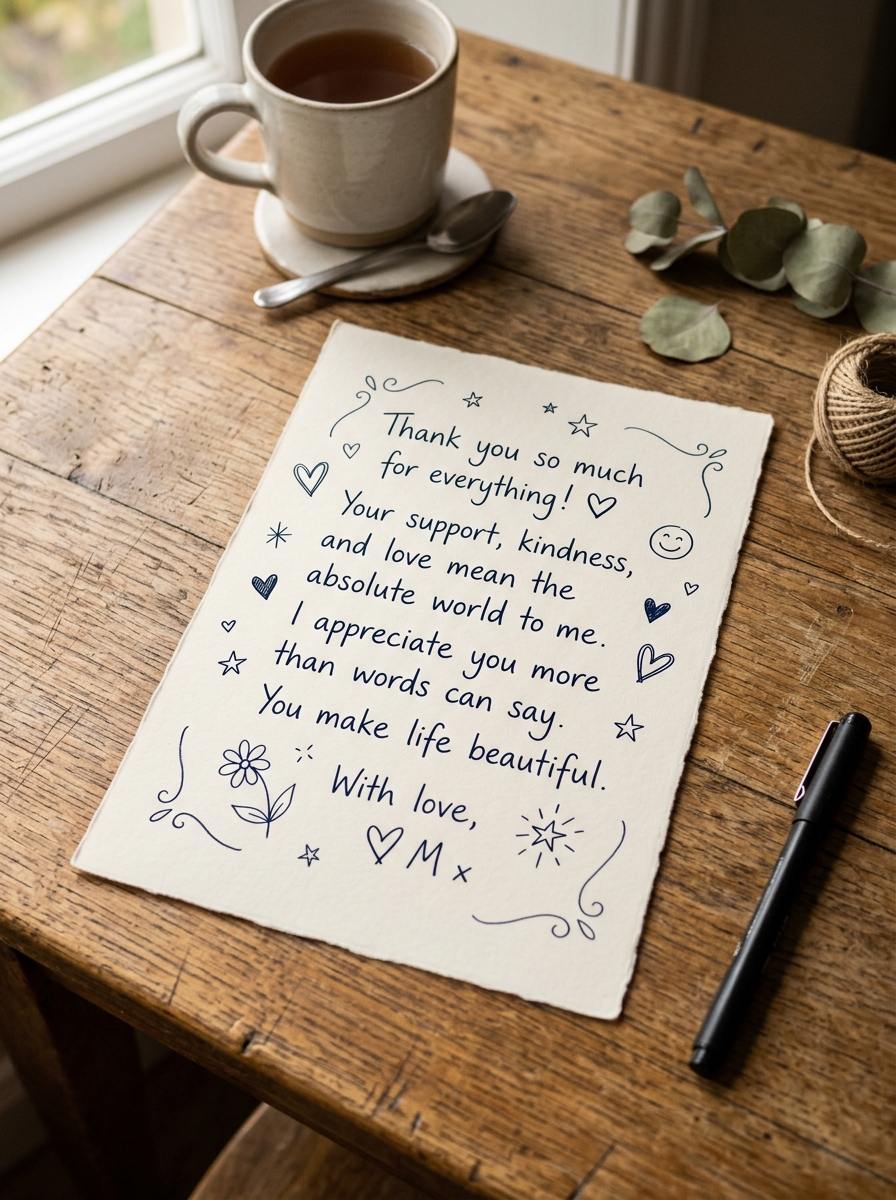 Thank you so much
for everything! ♡
Your support, kindness,
and love mean the
absolute world to me.
I appreciate you more
than words can say.
You make life beautiful.
With love,
♡ M x